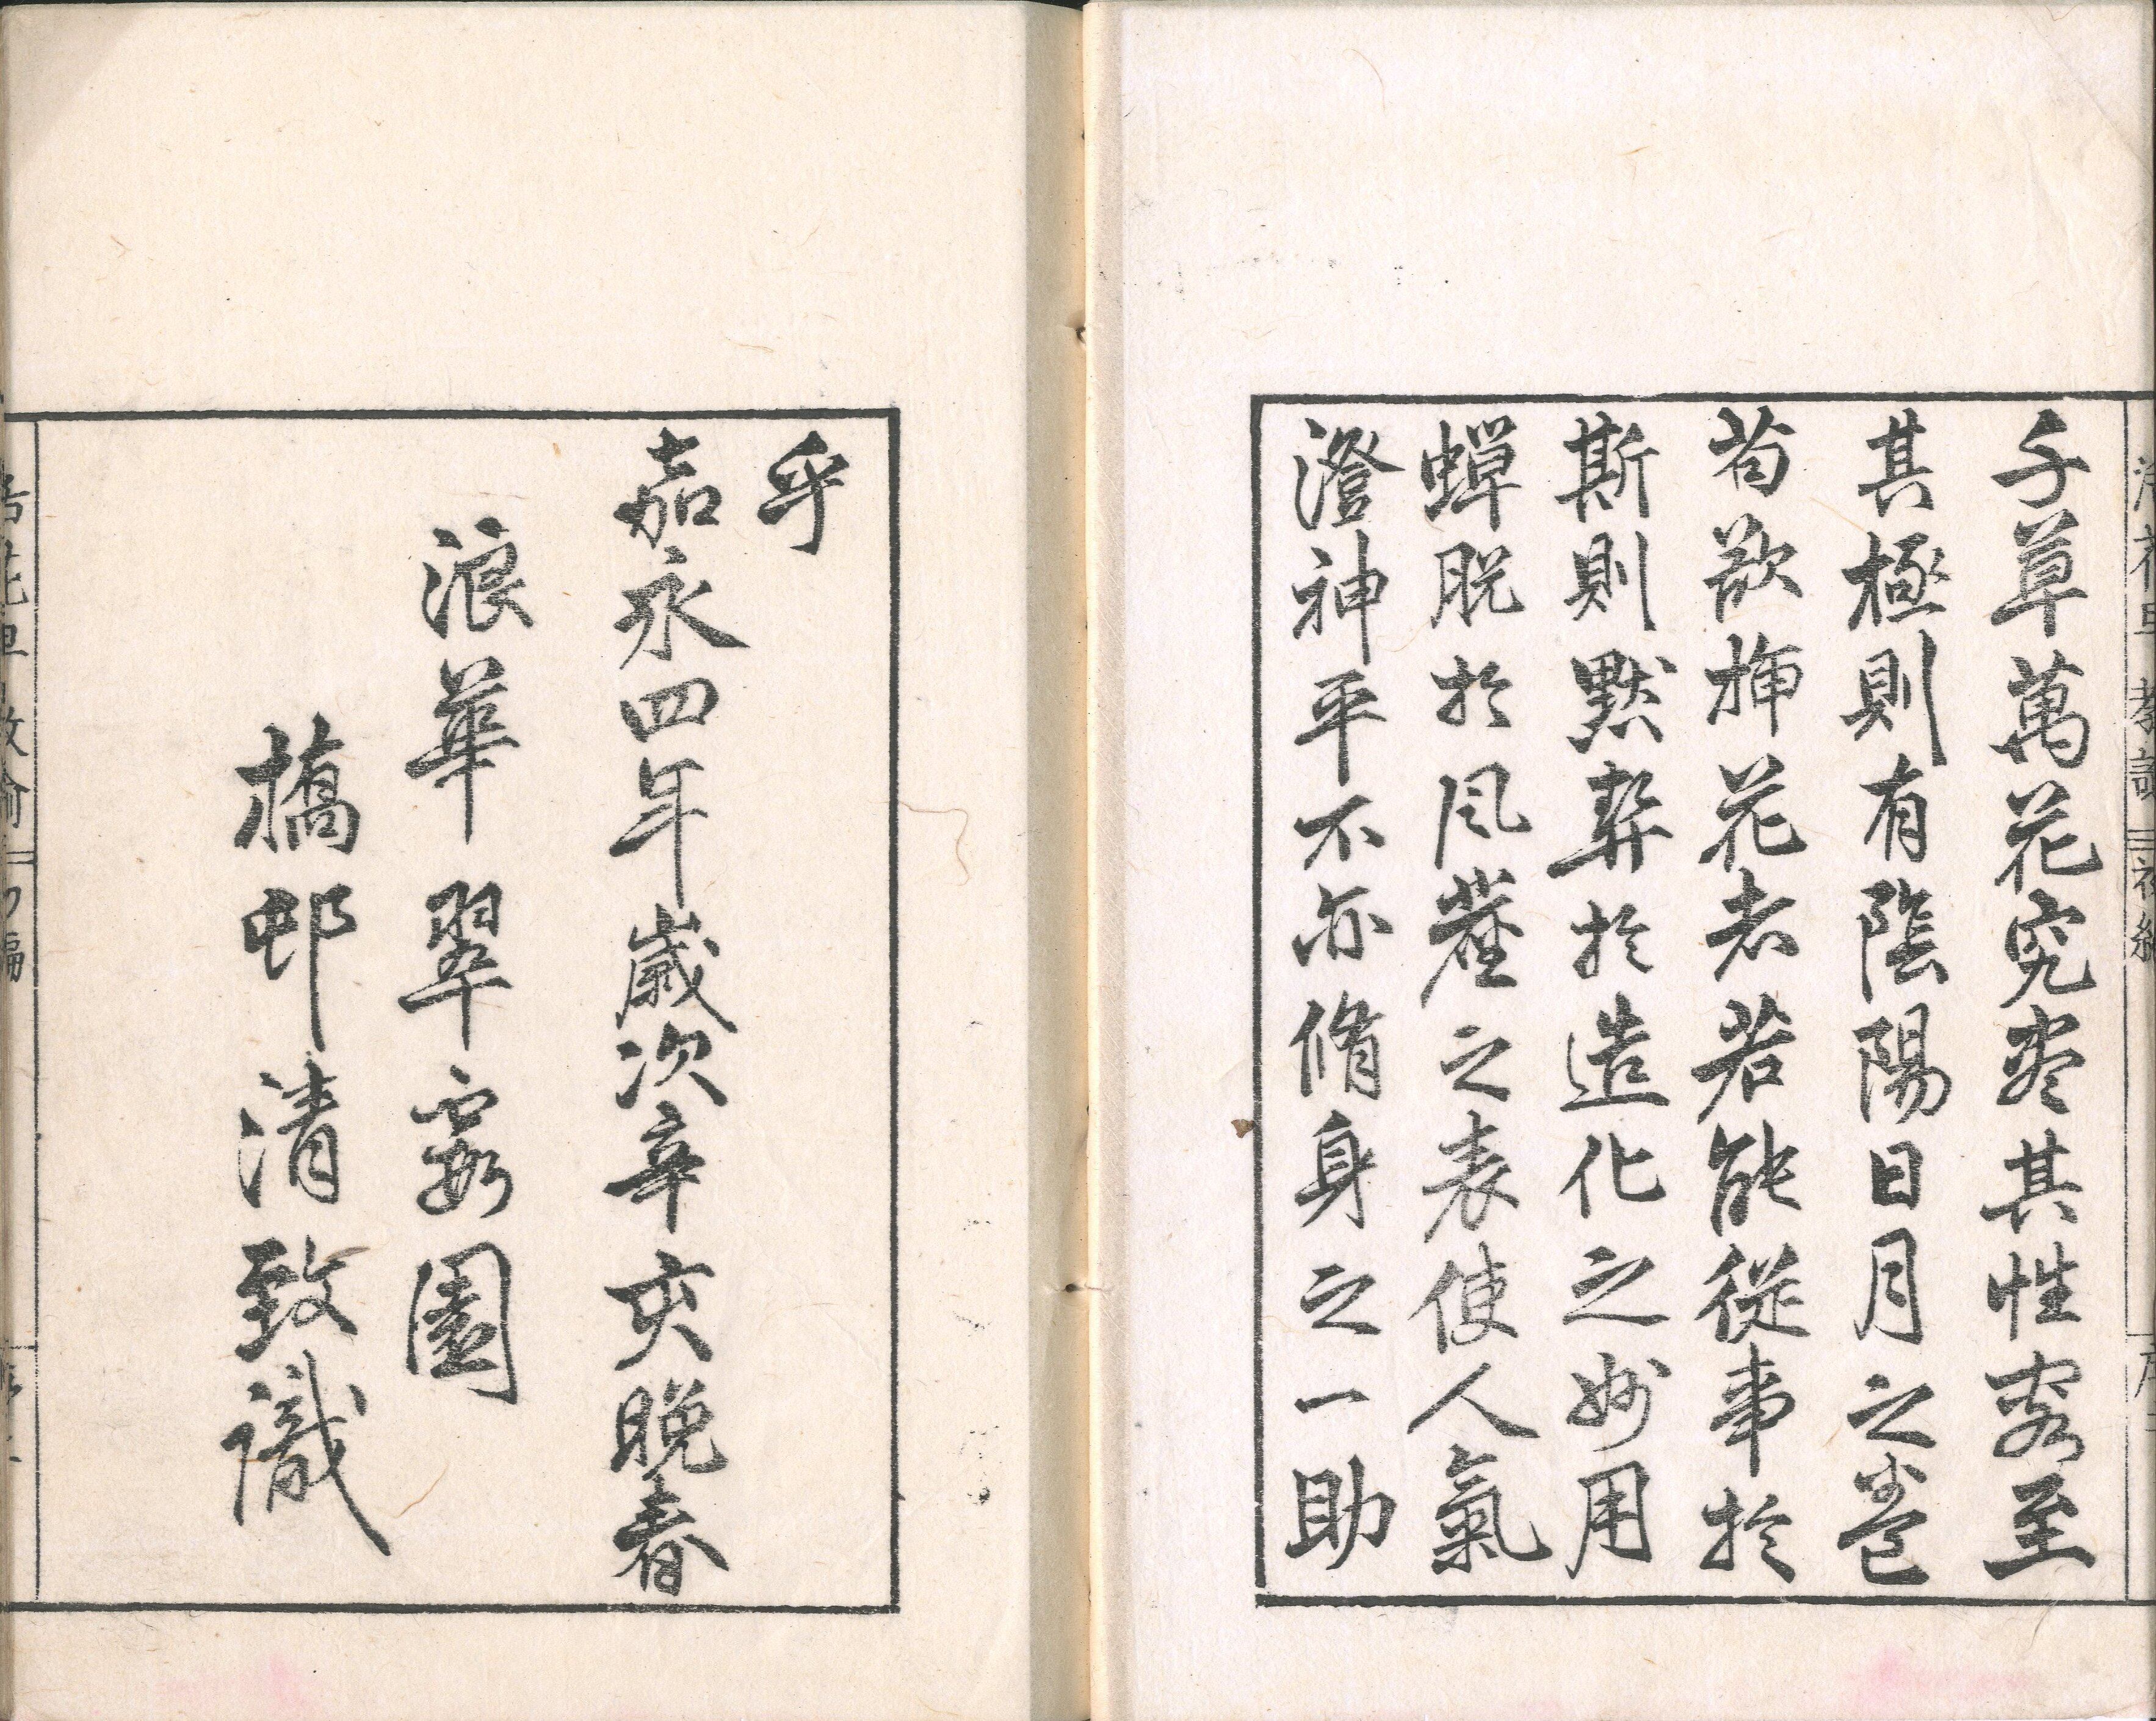 千草萬花究盡其性容至
其極則有陰陽日月之卷
苟欲揷花者若能從事於
斯則默契於造化之妙用
蟬脱於風塵之表使人氣
澄神平不亦脩身之一助
乎
嘉永四年歲次辛亥晩春
浪華翠霞園
橋邨清致識